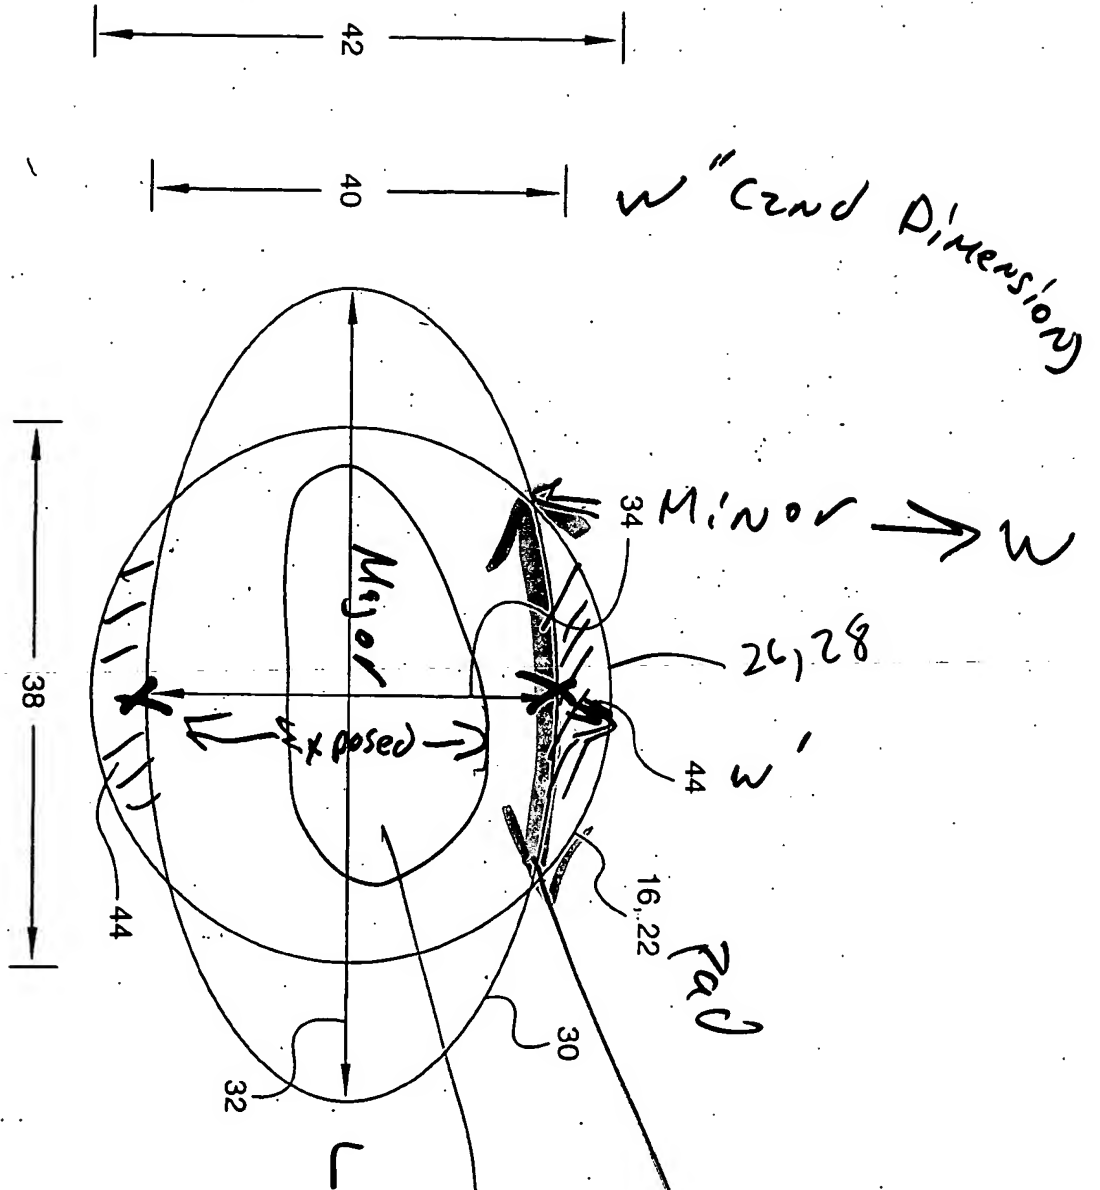 42
40
W" (2nd Dimension)
34 Minor → W
26, 28
Major
Exposed
38
44 W'
16, 22 Pad
44
30
32
L